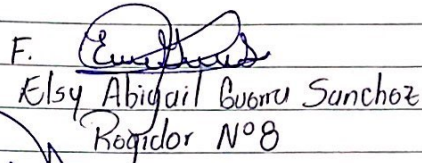 F.
Elsy Abigail Guerra Sanchez
Regidor Nº8